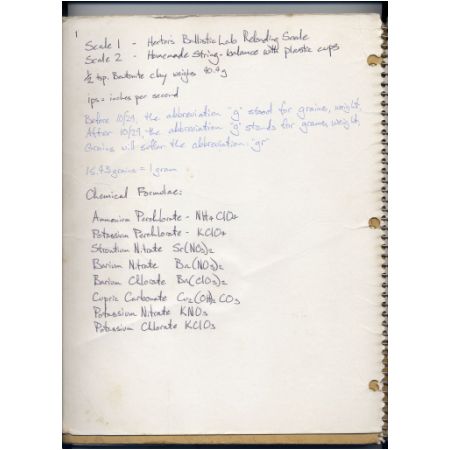 1
Scale 1 - Herter's Ballistic Lab Reloading Scale
Scale 2 - Homemade string-balance with plastic cups
½ tsp. Bentonite clay weighs 40.4g
ips = inches per second
Before 10/29, the abbreviation "g" stood for grains, weight.
After 10/29, the abbreviation "g" stands for grams, weight.
Grains will suffer the abbreviation "gr"
15.43 grains = 1 gram
Chemical Formulae:
Ammonium Perchlorate - NH4ClO4
Potassium Perchlorate - KClO4
Strontium Nitrate Sr(NO3)2
Barium Nitrate Ba(NO3)2
Barium Chlorate Ba(ClO3)2
Cupric Carbonate Cu2(OH)2CO3
Potassium Nitrate KNO3
Potassium Chlorate KClO3